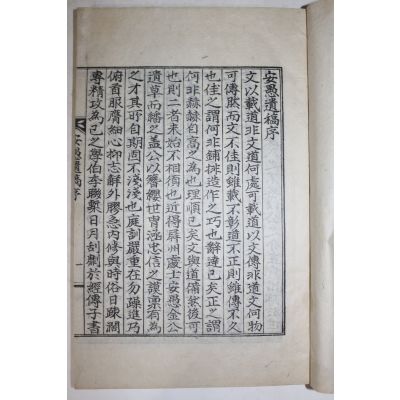 安愚遺稿序
文以載道非文道何處可載道以文傳非道文何物
可傳然而文不佳則雖載不彰道不正則雖傳不久
也佳之謂何非鋪排造作之巧也辭達已矣正之謂
何非赫赫自高之爲也理順已矣文與道備然後可
也則二者未始不相須也近得屛州處士安愚金公
遺草而繙之盖公以簪纓世冑涵忠信之謨稟有爲
之才其所自期固不淺淺也庭訓嚴重在勿躁進乃
俯首服膺細心抑志辭外膠急內修與時俗日踈濶
專精攻爲己之學伯季聯槧日月刮劘於經傳子書
安愚遺稿序
一